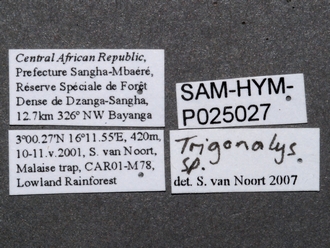 Central African Republic,
Prefecture Sangha-Mbaéré,
Réserve Spéciale de Forêt
Dense de Dzanga-Sangha,
12.7km 326° NW Bayanga
3°00.27'N 16°11.55'E, 420m,
10-11.v.2001, S. van Noort,
Malaise trap, CAR01-M78,
Lowland Rainforest
SAM-HYM-
P025027
Trigonalys
sp.
det. S. van Noort 2007